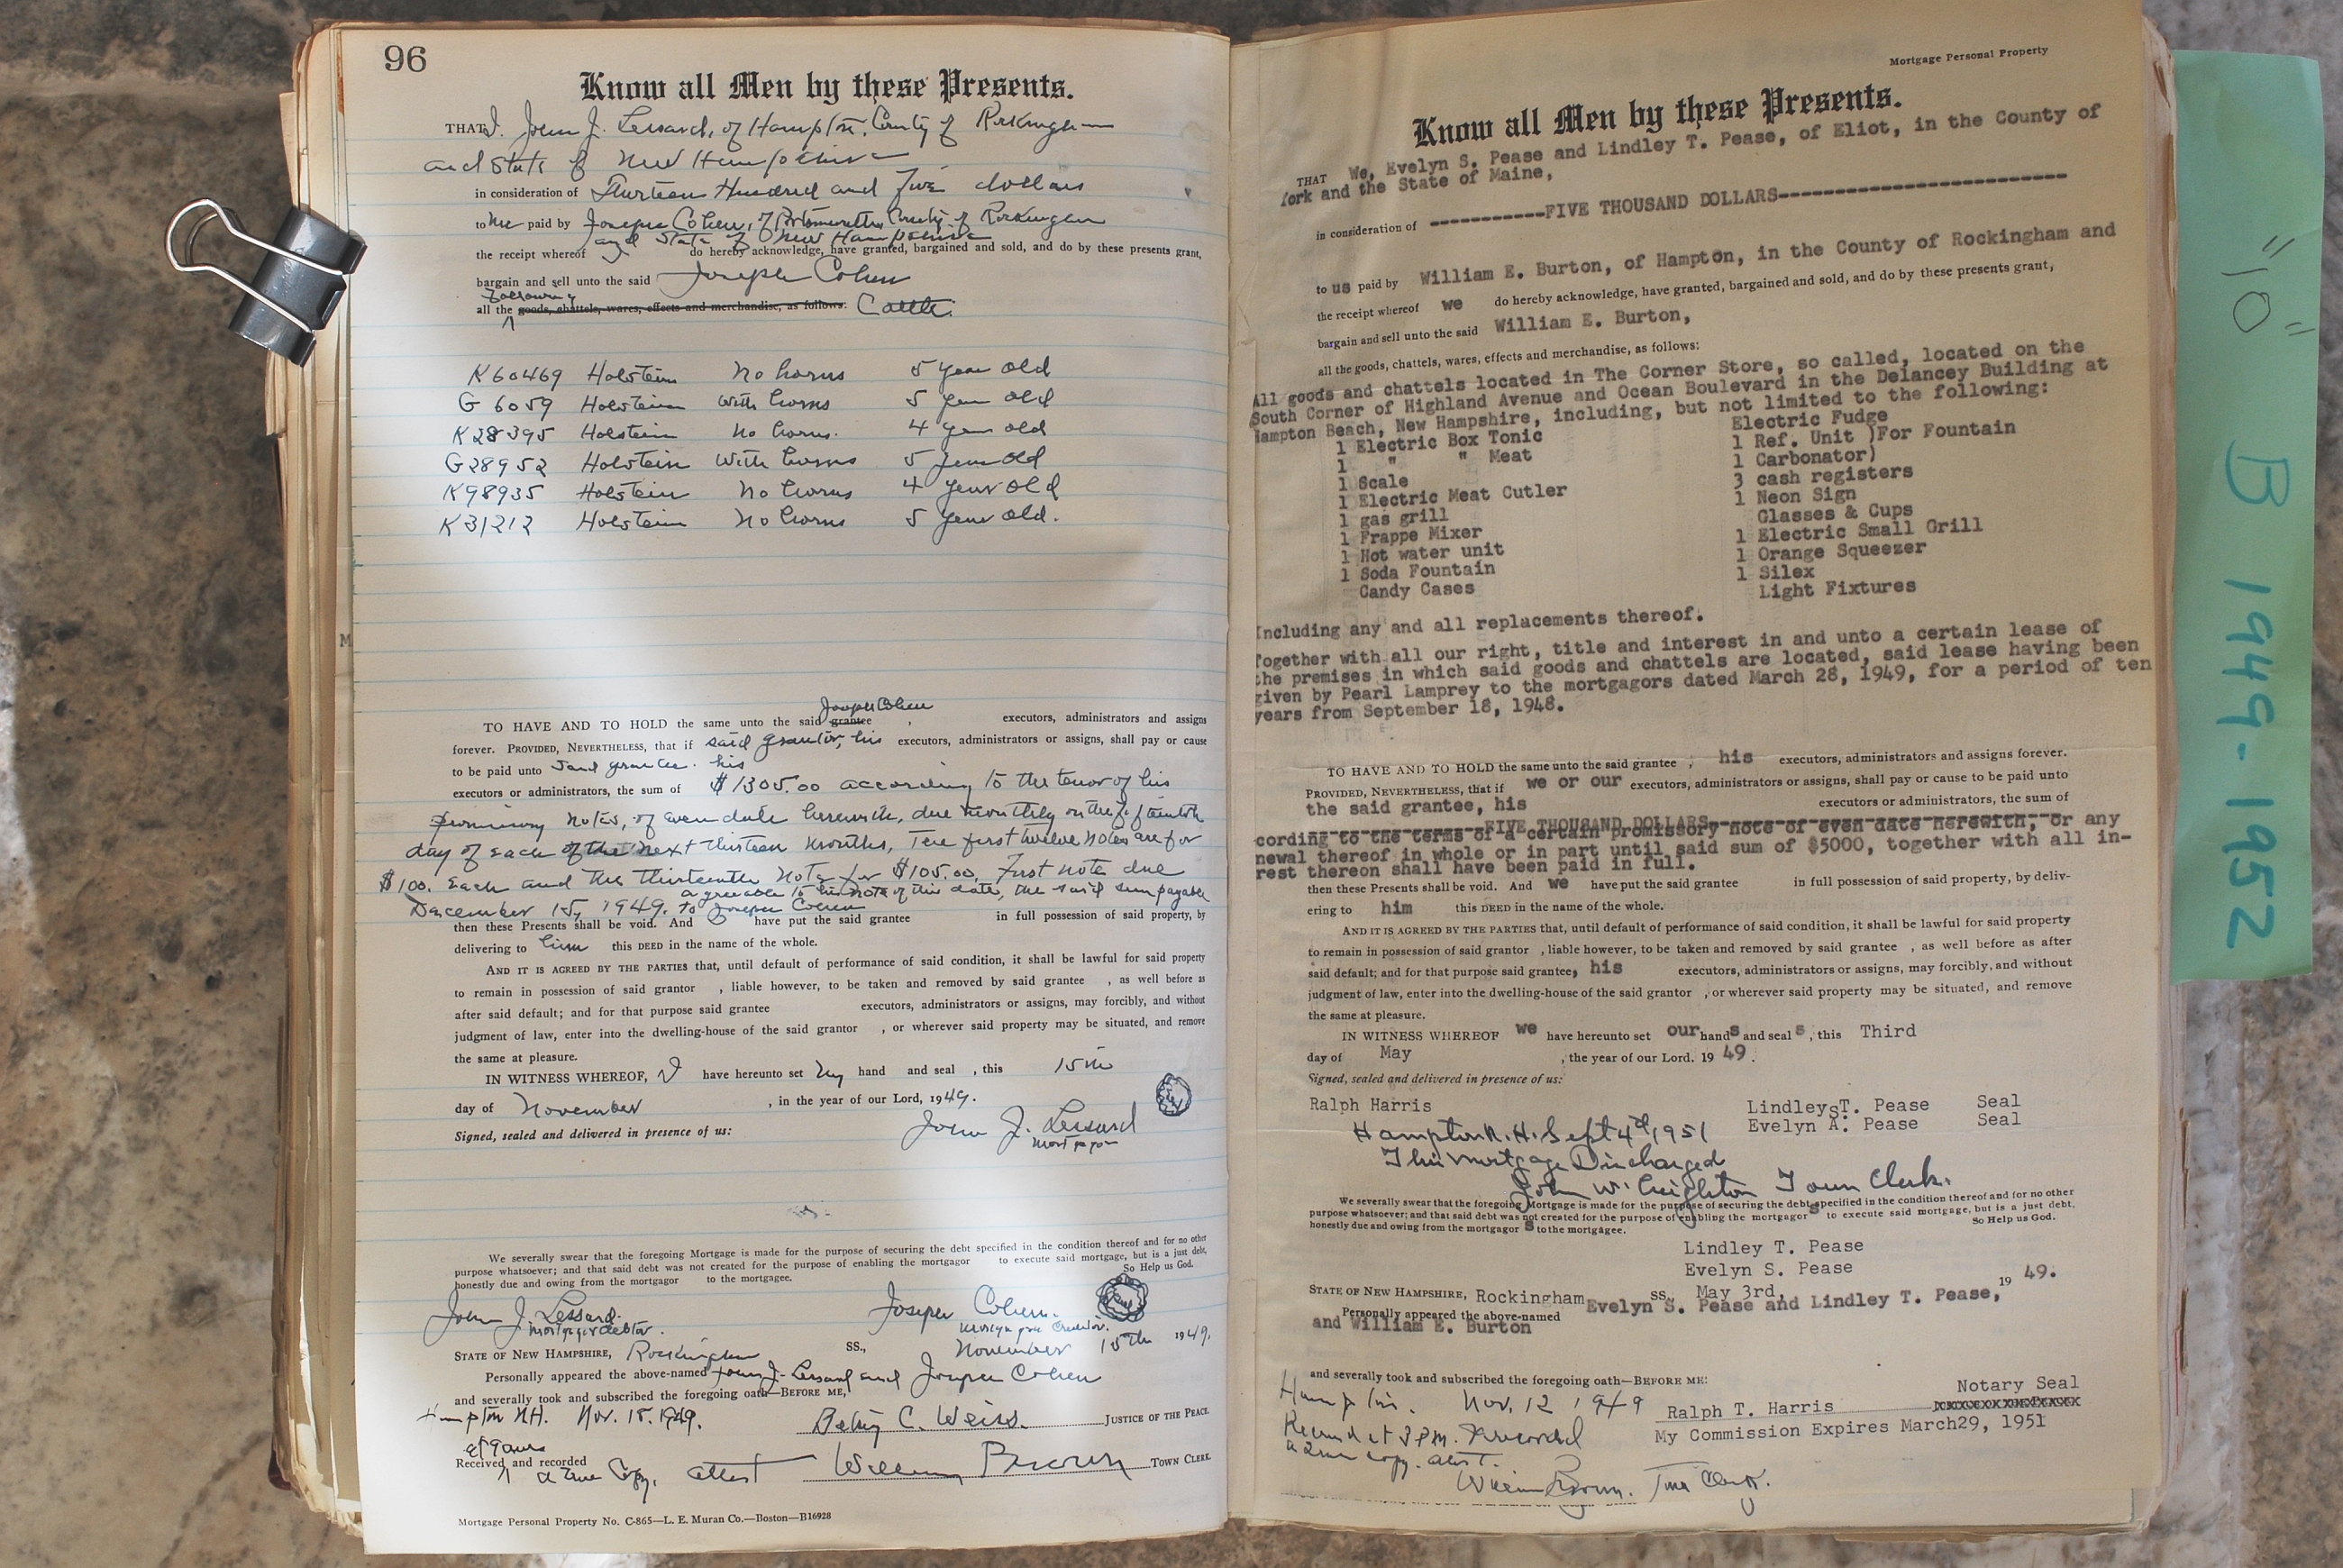 96
Know all Men by these Presents.
THAT I, John J. Lessard, of Hampton, County of Rockingham
and State of New Hampshire
in consideration of Thirteen Hundred and Five dollars
to me paid by Joseph Cohen, of Portsmouth County of Rockingham
and State of New Hampshire
the receipt whereof I do hereby acknowledge, have granted, bargained and sold, and do by these presents grant,
bargain and sell unto the said Joseph Cohen
following
all the goods, chattels, wares, effects and merchandise, as follows: Cattle.
K60469 Holstein No horns 5 year old
G 6059 Holstein With horns 5 year old
K28395 Holstein No horns. 4 year old
G28952 Holstein With horns 5 year old
K98935 Holstein No horns 4 year old
K31212 Holstein No horns 5 year old.
M
Joseph Cohen
TO HAVE AND TO HOLD the same unto the said grantee , executors, administrators and assigns
forever. PROVIDED, NEVERTHELESS, that if said grantor, his executors, administrators or assigns, shall pay or cause
to be paid unto said grantee. his
executors or administrators, the sum of $1305.00 according to the tenor of his
promissory notes, of even date herewith, due monthly on the fifteenth
day of each of the next thirteen months, The first twelve notes are for
$100. each and the thirteenth note for $105.00. First note due
agreeable to the note of this date, the said sum payable
December 15, 1949. to Joseph Cohen
then these Presents shall be void. And I have put the said grantee in full possession of said property, by
delivering to him this DEED in the name of the whole.
AND IT IS AGREED BY THE PARTIES that, until default of performance of said condition, it shall be lawful for said property
to remain in possession of said grantor , liable however, to be taken and removed by said grantee , as well before as
after said default; and for that purpose said grantee executors, administrators or assigns, may forcibly, and without
judgment of law, enter into the dwelling-house of the said grantor , or wherever said property may be situated, and remove
the same at pleasure.
IN WITNESS WHEREOF, I have hereunto set my hand and seal , this 15th
day of November , in the year of our Lord, 1949.
Signed, sealed and delivered in presence of us: John J. Lessard
Mortgagor
We severally swear that the foregoing Mortgage is made for the purpose of securing the debt specified in the condition thereof and for no other
purpose whatsoever; and that said debt was not created for the purpose of enabling the mortgagor to execute said mortgage, but is a just debt,
honestly due and owing from the mortgagor to the mortgagee. So Help us God.
John J. Lessard. Joseph Cohen.
Mortgagor debtor. Mortgagee Creditor.
STATE OF NEW HAMPSHIRE, Rockingham SS., November 15th 1949.
Personally appeared the above-named John J. Lessard and Joseph Cohen
and severally took and subscribed the foregoing oath—BEFORE ME,
Hampton NH. Nov. 18. 1949. Betsy C. Weiss. JUSTICE OF THE PEACE
at 9 am
Received and recorded
a true Copy, attest William Brown TOWN CLERK
Mortgage Personal Property No. C-865—L. E. Muran Co.—Boston—B16928
Mortgage Personal Property
Know all Men by these Presents.
THAT We, Evelyn S. Pease and Lindley T. Pease, of Eliot, in the County of
York and the State of Maine,
in consideration of -----------FIVE THOUSAND DOLLARS--------------------------
to us paid by William E. Burton, of Hampton, in the County of Rockingham and
the receipt whereof we do hereby acknowledge, have granted, bargained and sold, and do by these presents grant,
bargain and sell unto the said William E. Burton,
all the goods, chattels, wares, effects and merchandise, as follows:
All goods and chattels located in The Corner Store, so called, located on the
South Corner of Highland Avenue and Ocean Boulevard in the Delancey Building at
Hampton Beach, New Hampshire, including, but not limited to the following:
1 Electric Box Tonic Electric Fudge
1 " " Meat 1 Ref. Unit )For Fountain
1 Scale 1 Carbonator)
1 Electric Meat Cutler 3 cash registers
1 gas grill 1 Neon Sign
1 Frappe Mixer Glasses & Cups
1 Hot water unit 1 Electric Small Grill
1 Soda Fountain 1 Orange Squeezer
Candy Cases 1 Silex
Light Fixtures
Including any and all replacements thereof.
Together with all our right, title and interest in and unto a certain lease of
the premises in which said goods and chattels are located, said lease having been
given by Pearl Lamprey to the mortgagors dated March 28, 1949, for a period of ten
years from September 18, 1948.
TO HAVE AND TO HOLD the same unto the said grantee , his executors, administrators and assigns forever.
PROVIDED, NEVERTHELESS, that if we or our executors, administrators or assigns, shall pay or cause to be paid unto
the said grantee, his executors or administrators, the sum of
FIVE THOUSAND DOLLARS
cording to the terms of a certain promissory note of even date herewith, or any
newal thereof in whole or in part until said sum of $5000, together with all in-
rest thereon shall have been paid in full.
then these Presents shall be void. And we have put the said grantee in full possession of said property, by deliv-
ering to him this DEED in the name of the whole.
AND IT IS AGREED BY THE PARTIES that, until default of performance of said condition, it shall be lawful for said property
to remain in possession of said grantor , liable however, to be taken and removed by said grantee , as well before as after
said default; and for that purpose said grantee, his executors, administrators or assigns, may forcibly, and without
judgment of law, enter into the dwelling-house of the said grantor , or wherever said property may be situated, and remove
the same at pleasure.
IN WITNESS WHEREOF we have hereunto set our hands and seals, this Third
day of May , the year of our Lord. 1949.
Signed, sealed and delivered in presence of us:
Ralph Harris Lindley T. Pease Seal
Evelyn A. S Pease Seal
Hampton N. H. Sept 4th, 1951
This mortgage Discharged
John W. Creighton Town Clerk.
We severally swear that the foregoing Mortgage is made for the purpose of securing the debt specified in the condition thereof and for no other
purpose whatsoever; and that said debt was not created for the purpose of enabling the mortgagors to execute said mortgage, but is a just debt,
honestly due and owing from the mortgagor s to the mortgagee. So Help us God.
Lindley T. Pease
Evelyn S. Pease
STATE OF NEW HAMPSHIRE, Rockingham SS., May 3rd, 1949.
Personally appeared the above-named Evelyn S. Pease and Lindley T. Pease,
and William E. Burton
and severally took and subscribed the foregoing oath—BEFORE ME:
Notary Seal
Hampton. Nov. 12 1949 Ralph T. Harris
Received at 3 P.M. Recorded My Commission Expires March29, 1951
a true copy. attest.
William Brown. Town Clerk.
"10" B 1949-1952